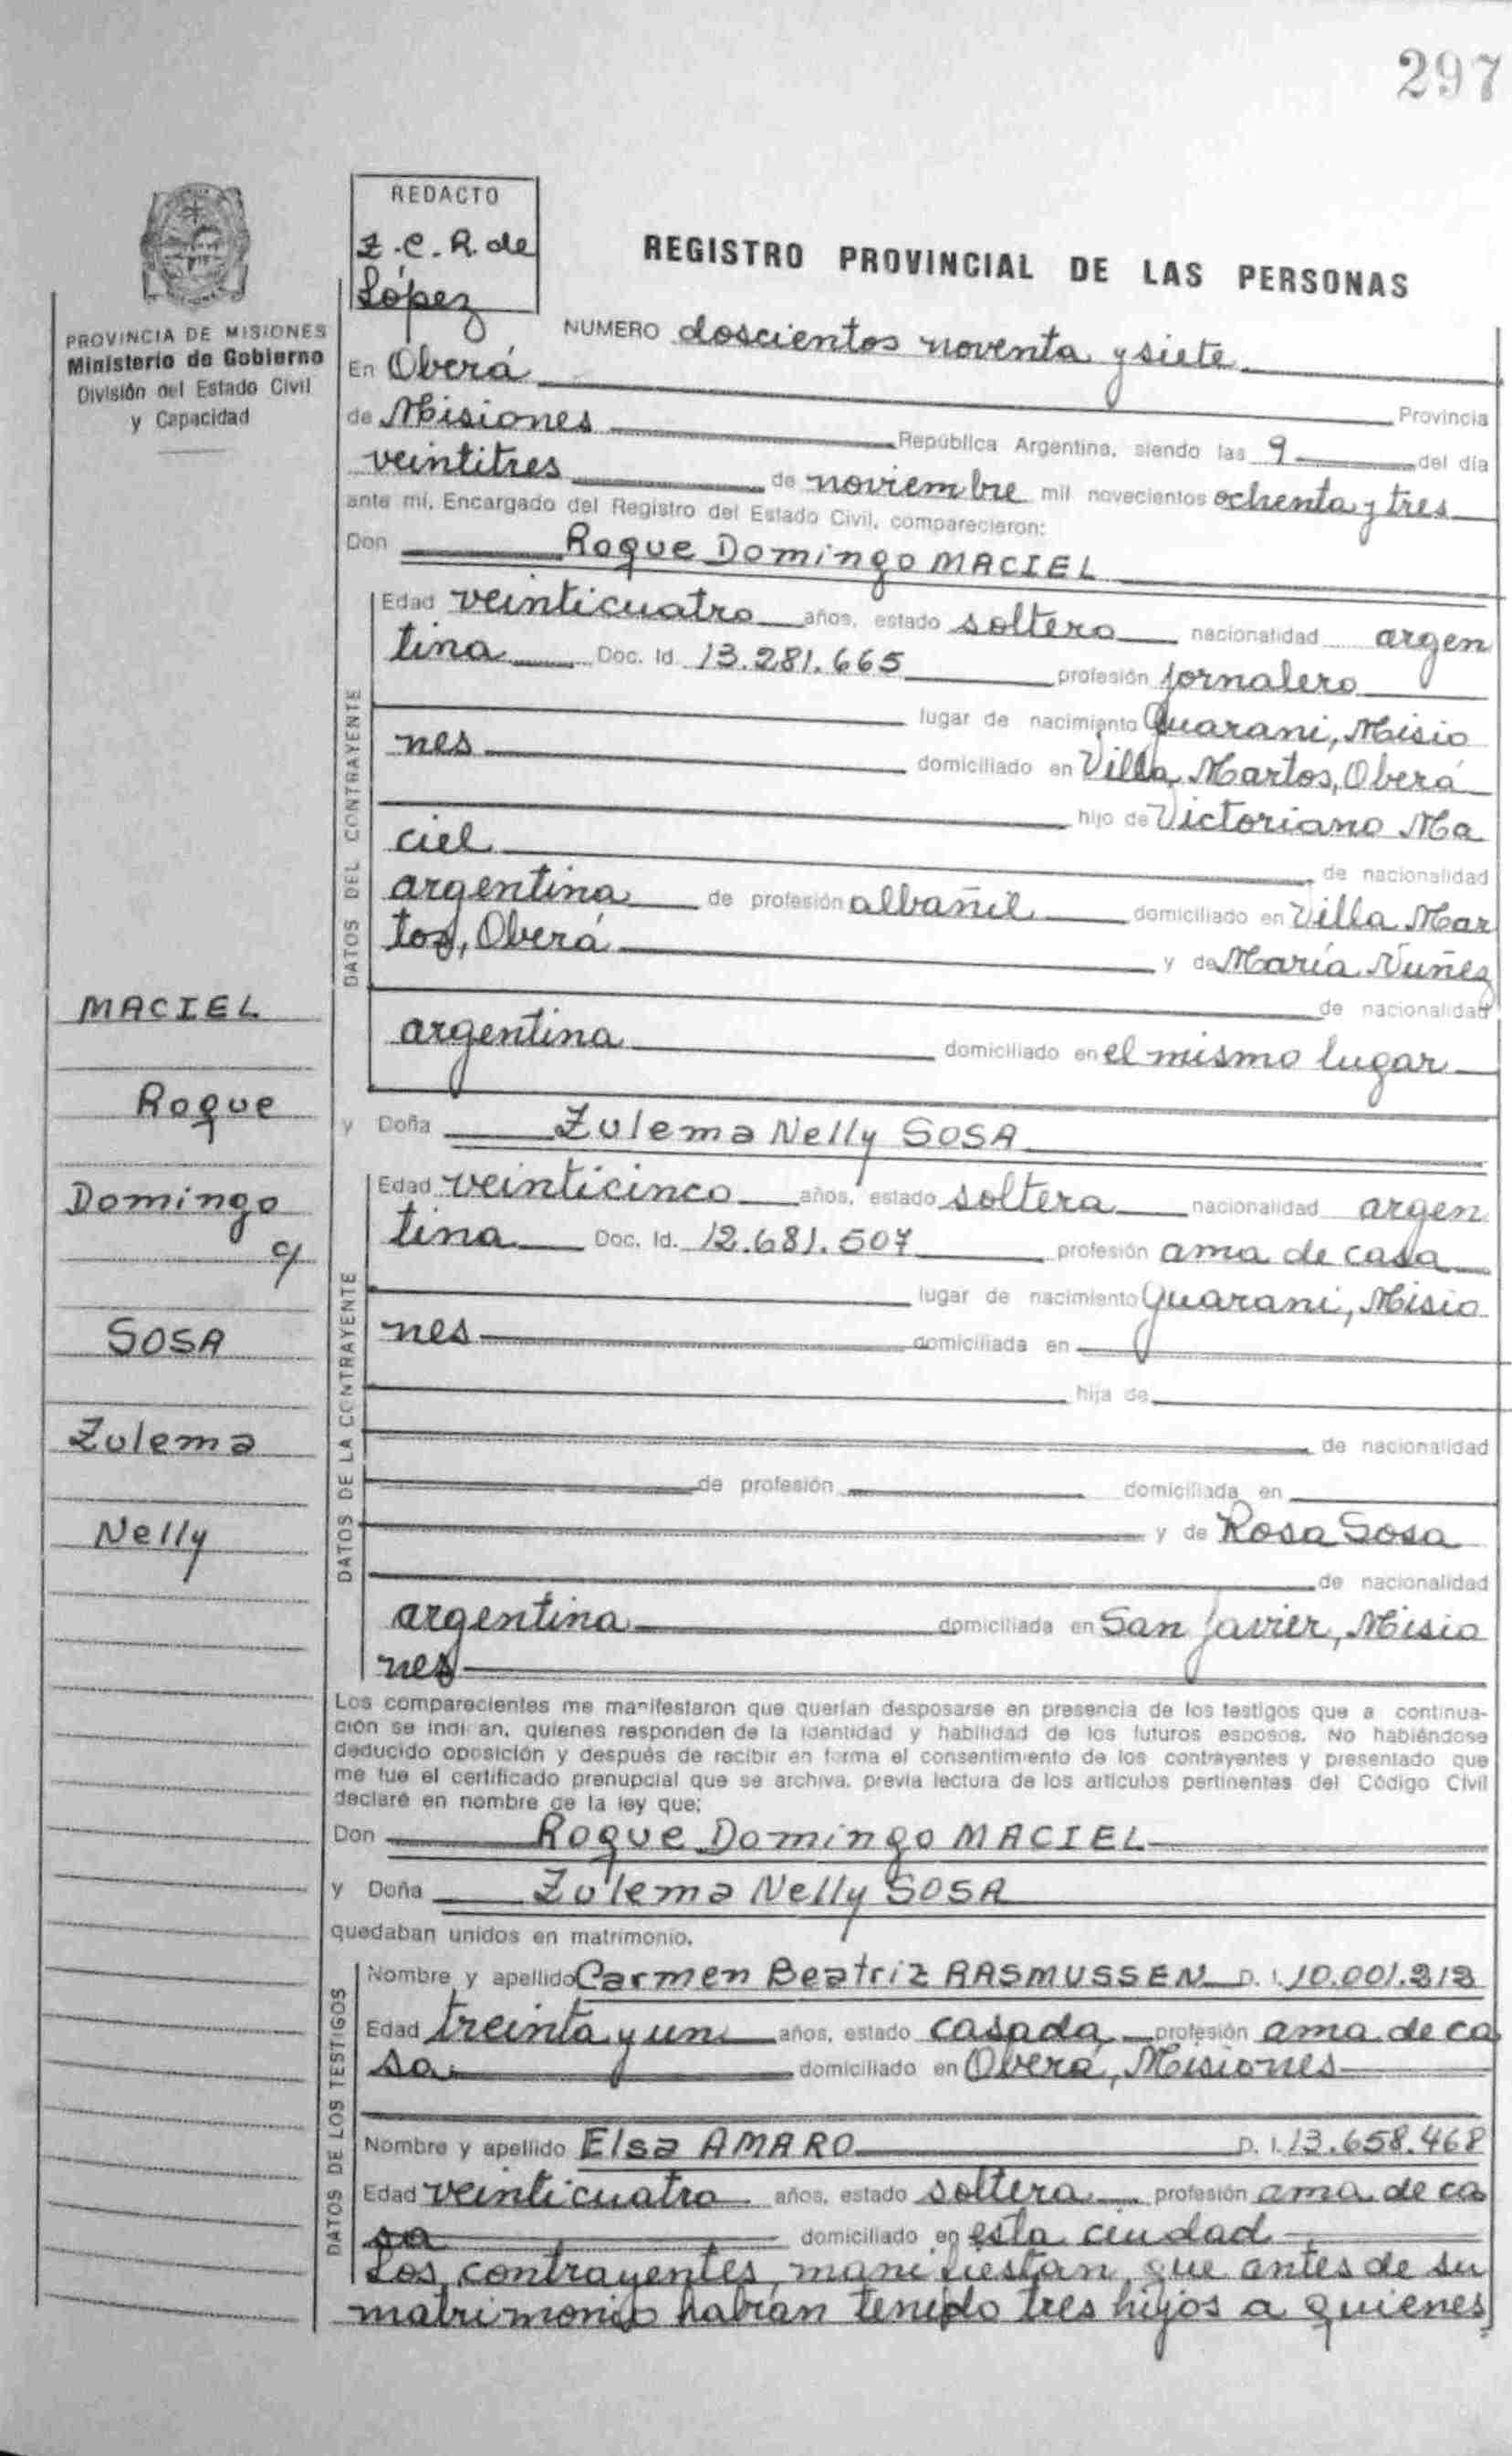 297
REDACTO
Z.C.R. de
López
REGISTRO PROVINCIAL DE LAS PERSONAS
PROVINCIA DE MISIONES
Ministerio de Gobierno
División del Estado Civil
y Capacidad
NUMERO doscientos noventa y siete
En Oberá
Provincia
de Misiones República Argentina, siendo las 9 del día
veintitres de noviembre mil novecientos ochenta y tres
ante mí, Encargado del Registro del Estado Civil, comparecieron:
Don Roque Domingo MACIEL
DATOS DEL CONTRAYENTE
Edad veinticuatro años, estado soltero nacionalidad argen
tina Doc. Id. 13.281.665 profesión jornalero
lugar de nacimiento Guarani, Misio
nes domiciliado en Villa Martos, Oberá
hijo de Victoriano Ma
ciel de nacionalidad
argentina de profesión albañil domiciliado en Villa Mar
tos, Oberá y de María Nuñez
de nacionalidad
argentina domiciliado en el mismo lugar
MACIEL
Roque
Domingo
c/
SOSA
Zulema
Nelly
y Doña Zulema Nelly SOSA
DATOS DE LA CONTRAYENTE
Edad veinticinco años, estado soltera nacionalidad argen
tina Doc. Id. 12.681.507 profesión ama de casa
lugar de nacimiento Guarani, Misio
nes domiciliada en
hija de
de nacionalidad
de profesión domiciliada en
y de Rosa Sosa
de nacionalidad
argentina domiciliada en San Javier, Misio
nes
Los comparecientes me manifestaron que querían desposarse en presencia de los testigos que a continua-
ción se indi an, quienes responden de la identidad y habilidad de los futuros esposos. No habiéndose
deducido oposición y después de recibir en forma el consentimiento de los contrayentes y presentado que
me fue el certificado prenupcial que se archiva, previa lectura de los artículos pertinentes del Código Civil
declaré en nombre de la ley que:
Don Roque Domingo MACIEL
y Doña Zulema Nelly SOSA
quedaban unidos en matrimonio.
DATOS DE LOS TESTIGOS
Nombre y apellido Carmen Beatriz RASMUSSEN D. I. 10.001.212
Edad treinta y un años, estado casada profesión ama de ca
sa domiciliado en Oberá, Misiones
Nombre y apellido Elsa AMARO D. I. 13.658.468
Edad veinticuatro años, estado soltera profesión ama de ca
sa domiciliado en esta ciudad
Los contrayentes manifiestan que antes de su
matrimonio habían tenido tres hijos a quienes